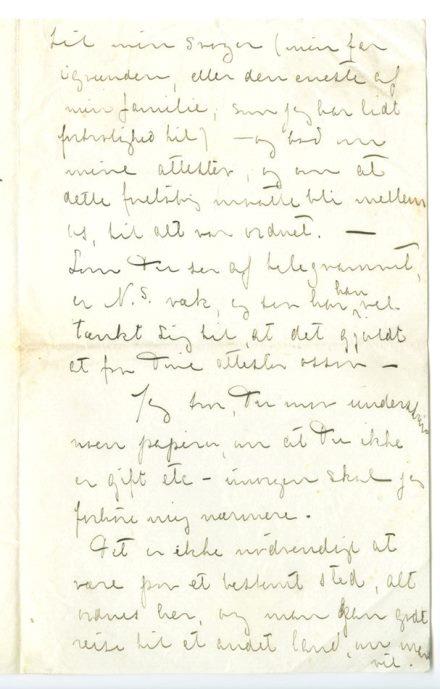 til min svoger (min far
igrunden, eller den eneste af
min familie, som jeg har lidt
fortrolighed til) – og bad om
mine attester, og om at
dette foreløbig maatte bli mellem
os, til alt var ordnet. —
Som Du ser af telegrammet,
er N.S. væk, og saa har han vel
tænkt sig til, at det gjældt
at faa Dine attester ossaa –
Jeg tror, Du maa underskrive
noen papirer, om at Du ikke
er gift etc – imorgen skal jeg
forhøre mig nærmere.
Det er ikke nødvendigt at
være paa et bestemt sted, alt
ordnes her, og man kan godt
reise til et andet land, om man
vil.